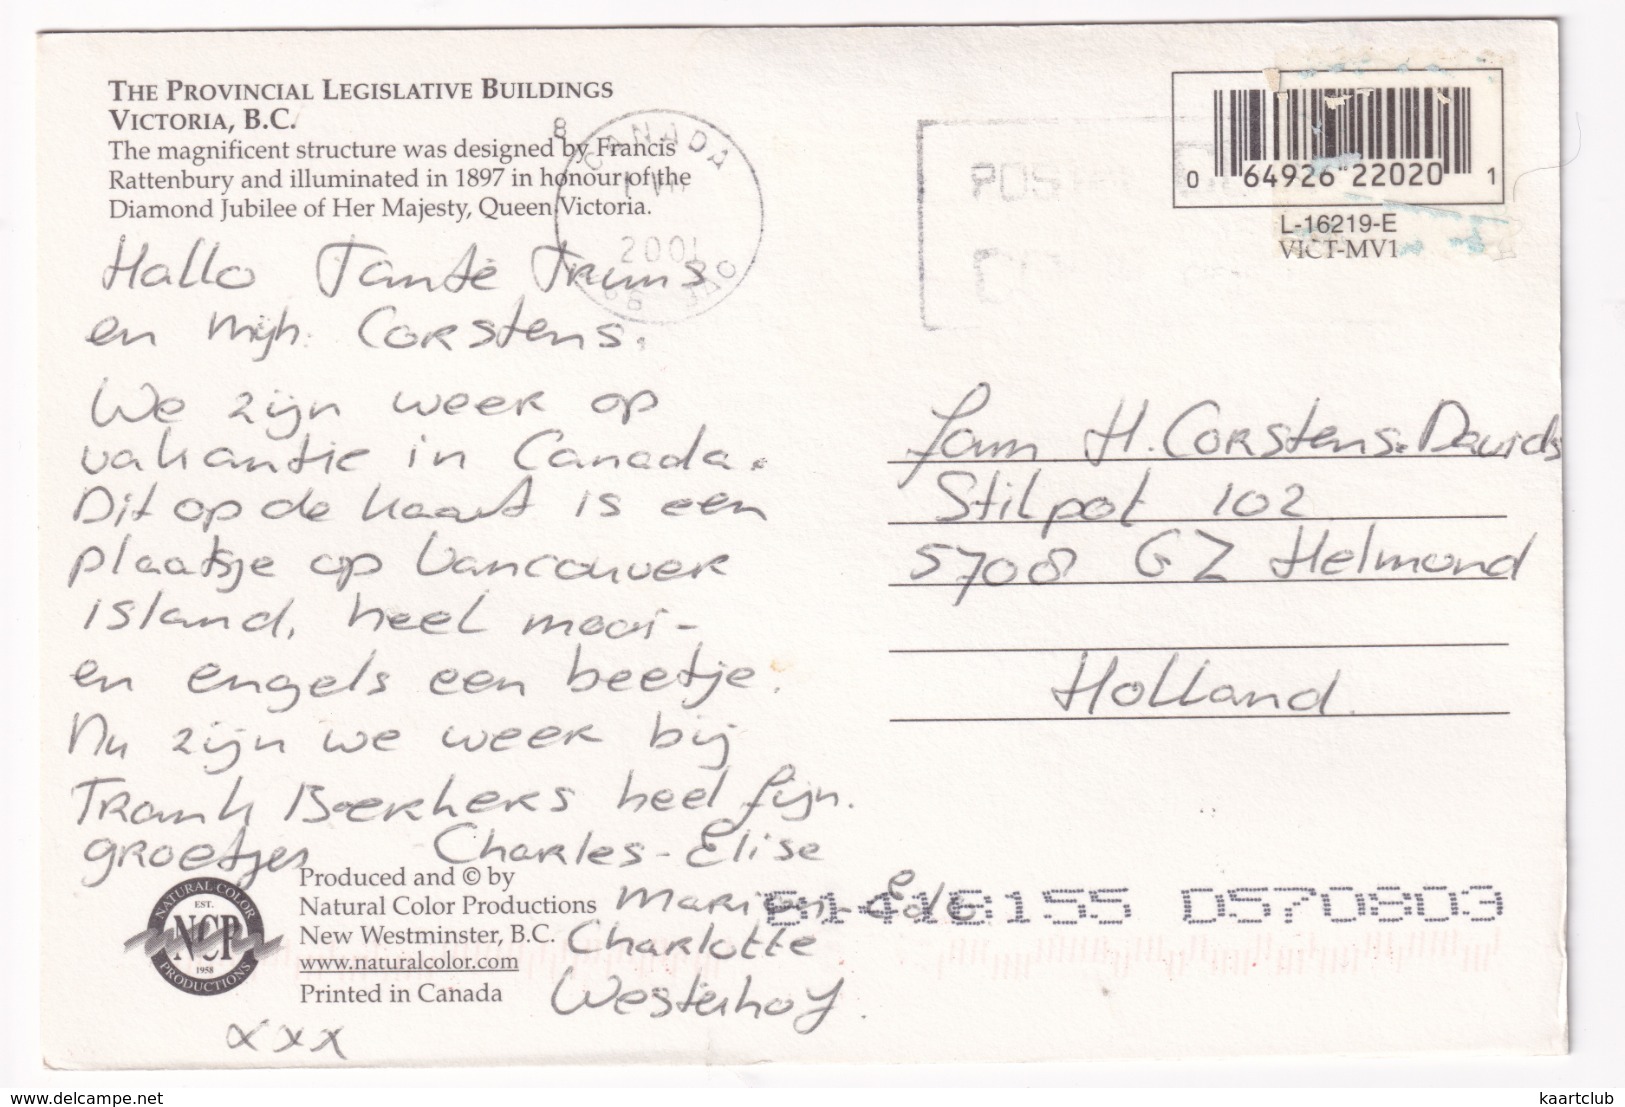 THE PROVINCIAL LEGISLATIVE BUILDINGS
VICTORIA, B.C.
The magnificent structure was designed by Francis
Rattenbury and illuminated in 1897 in honour of the
Diamond Jubilee of Her Majesty, Queen Victoria.
CANADA
2001
POSTAL
0 64926 22020 1
L-16219-E
VICT-MV1
Hallo Tante Truus
en mijh. Corstens.
We zijn weer op
vakantie in Canada.
Dit op de kaart is een
plaatsje op Vancouver
island, heel mooi -
en engels een beetje.
Nu zijn we weer bij
Frank Boerkers heel fijn.
groetjes Charles - Elise
Marion - Edo
Charlotte
Westerhof.
xxx
Fam H. Corstens-Davids
Stilpot 102
5708 GZ Helmond
Holland.
NATURAL COLOR
EST.
NCP
1958
PRODUCTIONS
Produced and © by
Natural Color Productions
New Westminster, B.C.
www.naturalcolor.com
Printed in Canada
61418155 D570803
www.delcampe.net
kaartclub